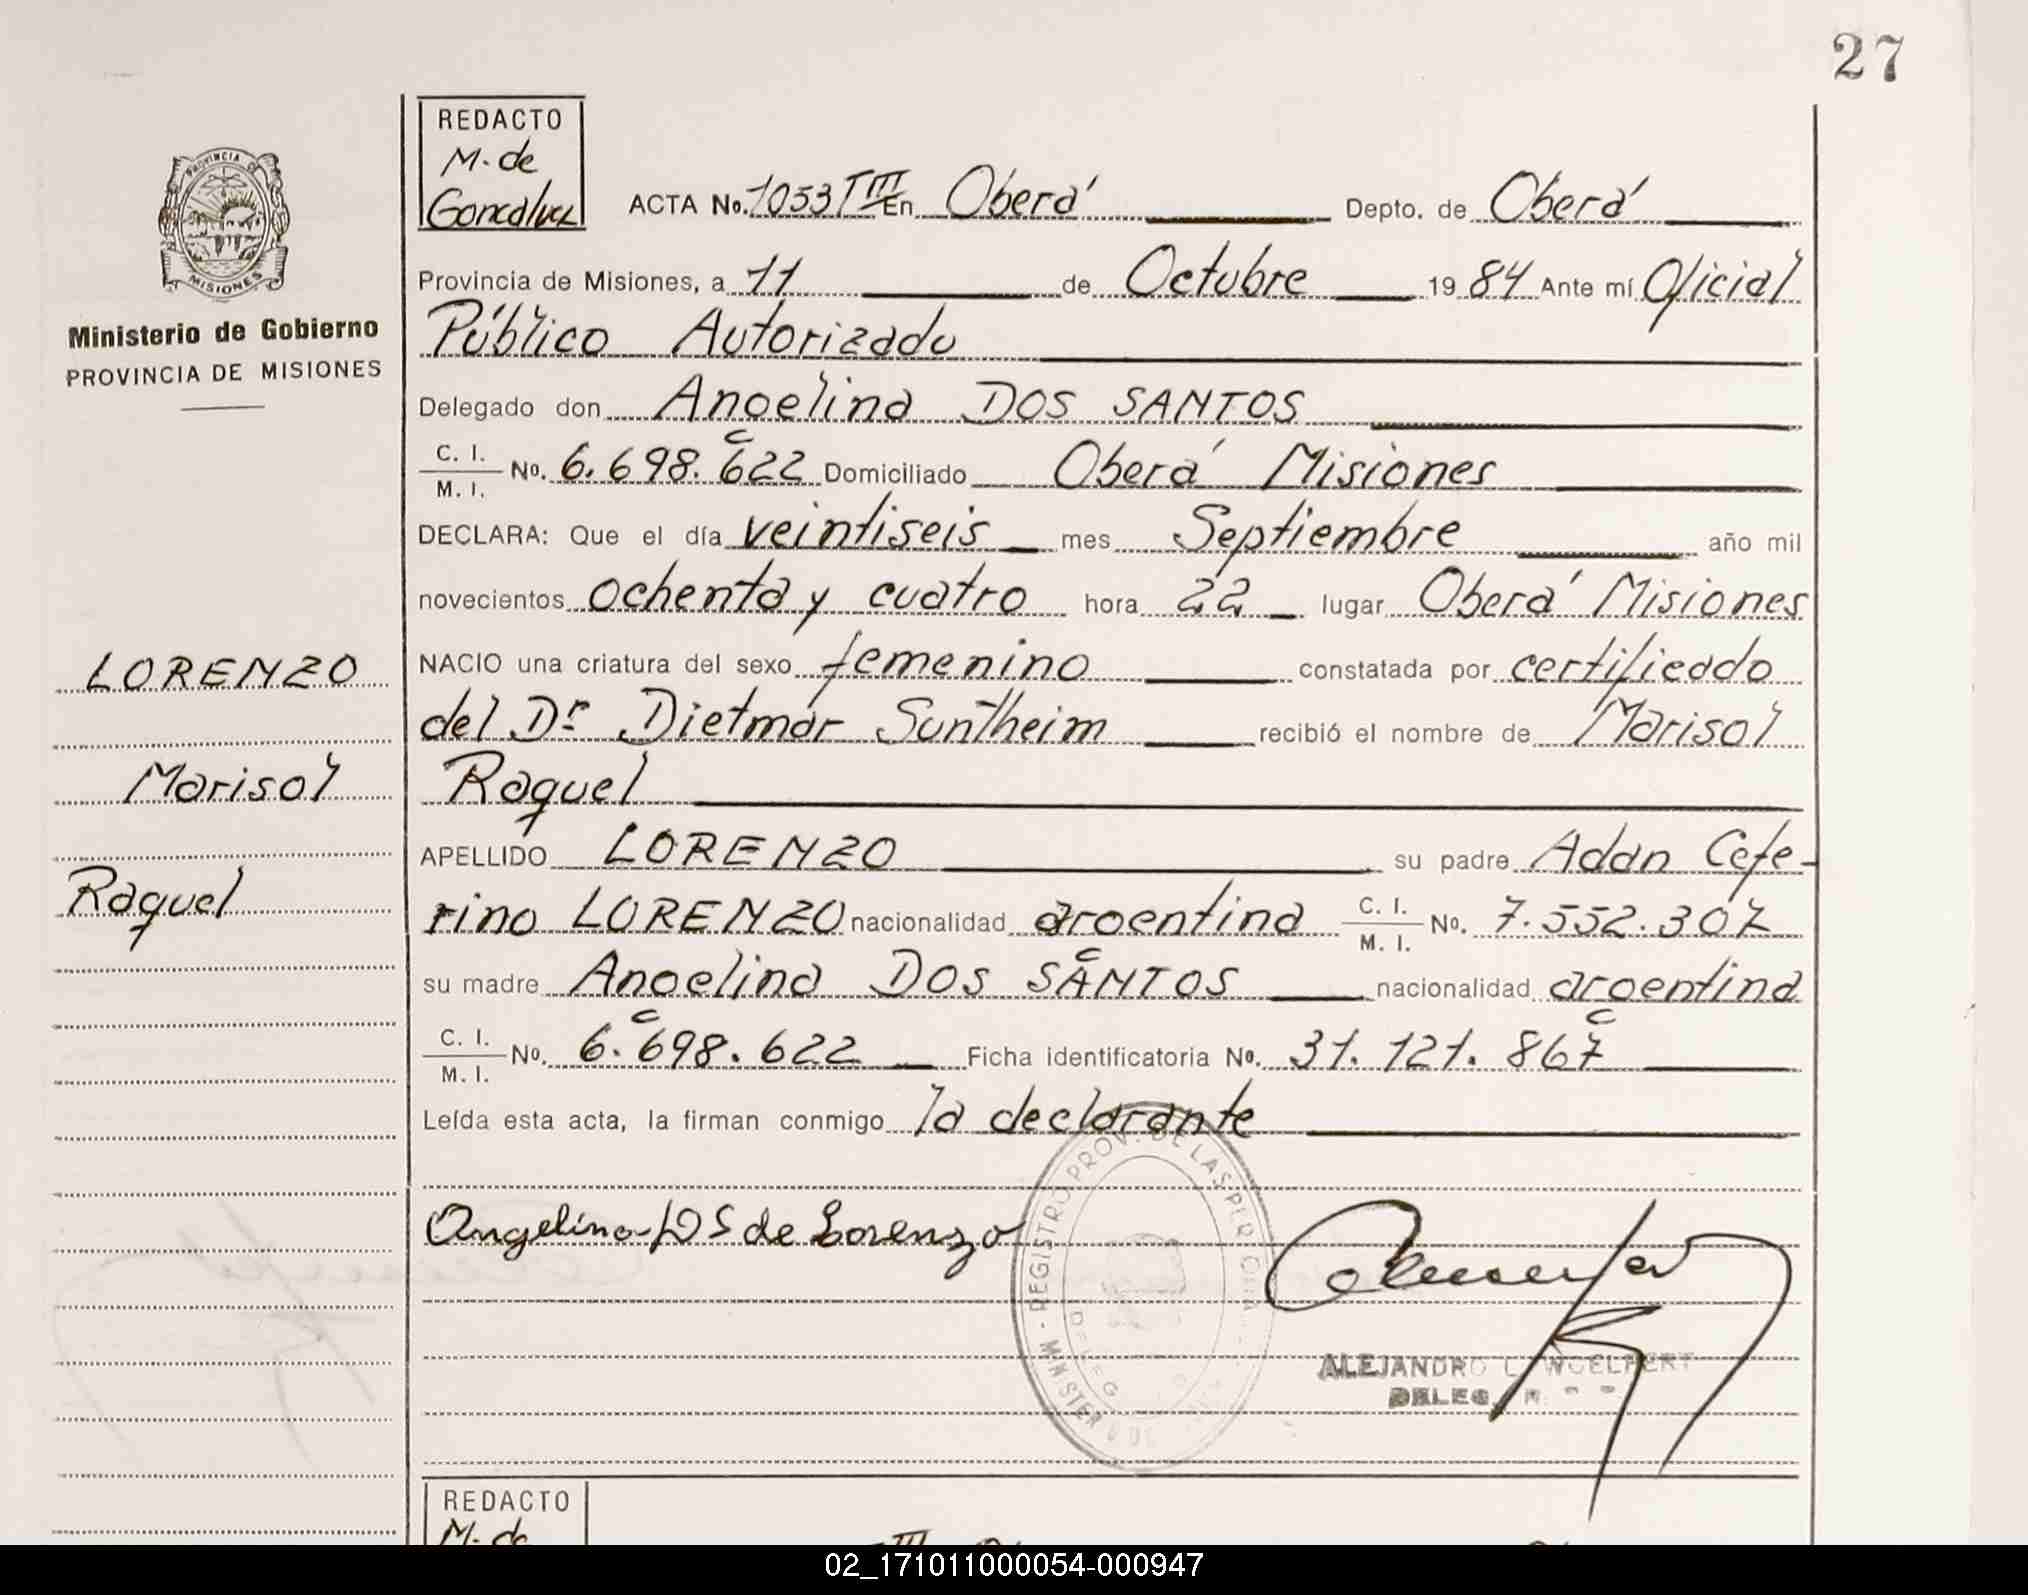 27
REDACTO
M. de
Goncalvez
ACTA No. 1053 T III En Oberá Depto. de Oberá
PROVINCIA DE
MISIONES
Ministerio de Gobierno
PROVINCIA DE MISIONES
Provincia de Misiones, a 11 de Octubre 1984 Ante mí Oficial
Público Autorizado
Delegado don Angelina DOS SANTOS
C. I.
M. I. No. 6.698.622 Domiciliado Oberá Misiones
DECLARA: Que el día veintiseis mes Septiembre año mil
novecientos ochenta y cuatro hora 22 lugar Oberá Misiones
LORENZO
NACIO una criatura del sexo femenino constatada por certificado
del Dr Dietmar Suntheim recibió el nombre de Marisol
Marisol
Raquel
APELLIDO LORENZO su padre Adan Cefe-
Raquel
rino LORENZO nacionalidad argentina C. I.
M. I. No. 7.552.307
su madre Angelina DOS SANTOS nacionalidad argentina
C. I.
M. I. No. 6.698.622 Ficha identificatoria No. 31.121.867
Leída esta acta, la firman conmigo la declarante
Angelina DS de Lorenzo
REGISTRO PROV. DE LAS PER
MINISTERIO DE
ALEJANDRO L. WOELFERT
DELEG
REDACTO
M. de
III
02_171011000054-000947